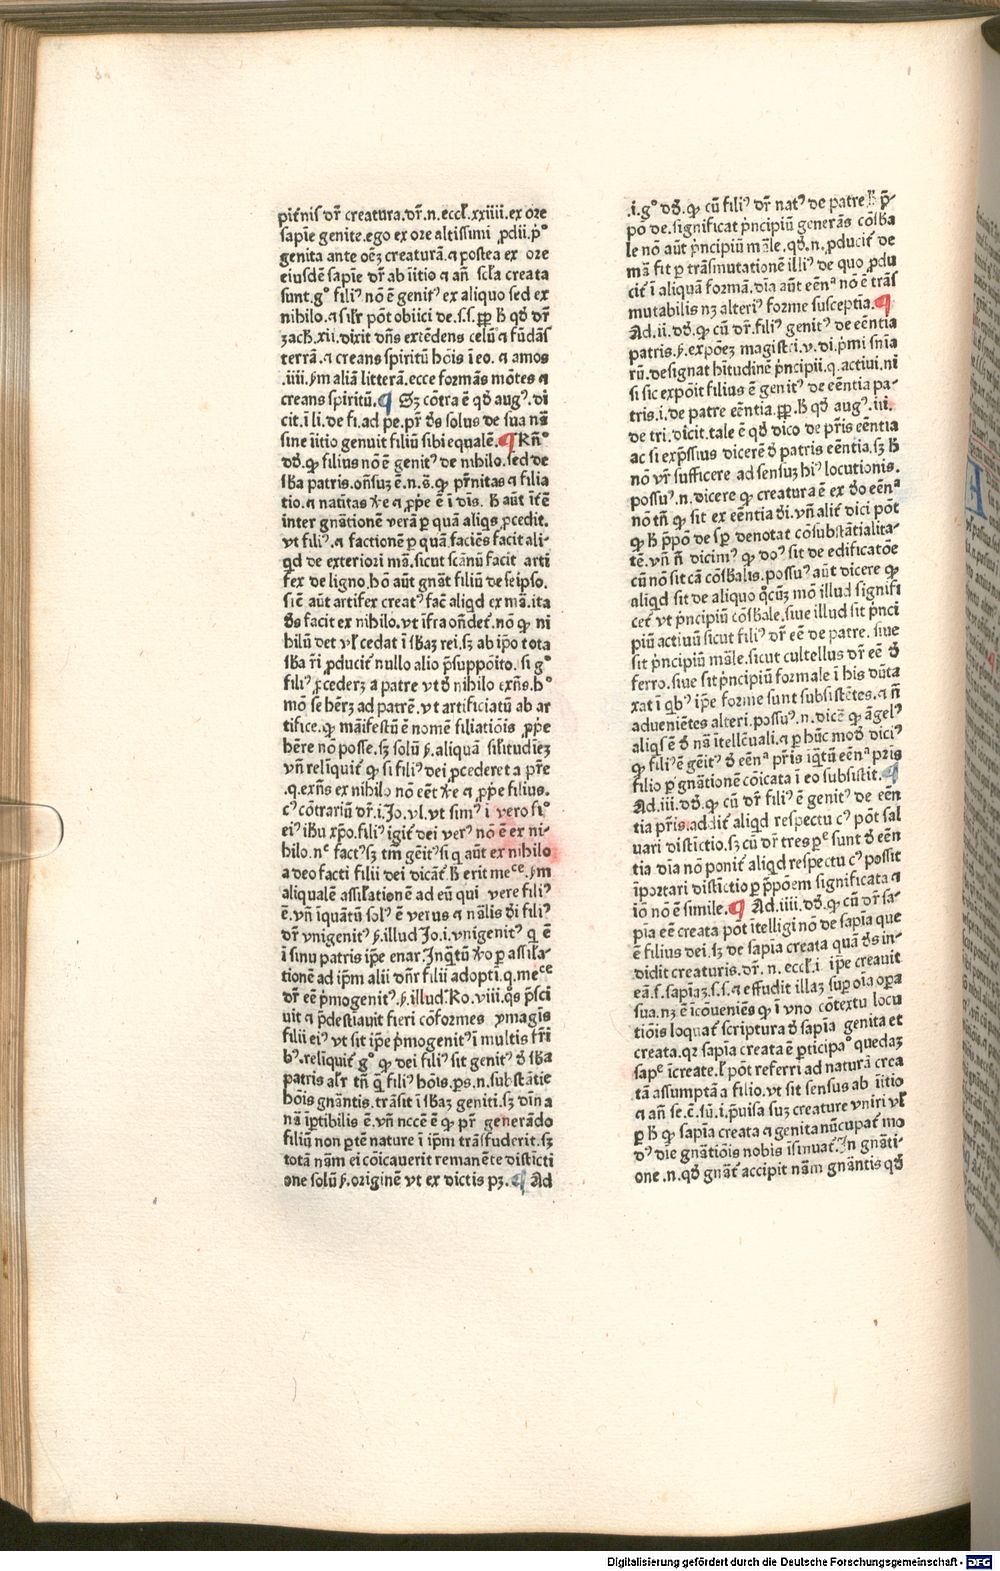 pit̃nis dr̃ creatura.dr̃.n.eccł.xxiiii.ex ore
sapĩe genite.ego ex ore altissimi ꝓdii.p̃º
genita ante oẽꝫ creaturã.⁊ postea ex ore
eiusdẽ sapĩe dr̃ ab iĩtio ⁊ añ scł̃a creata
sunt.gº filiꝰ nõ ẽ genitꝰ ex aliquo sed ex
nihilo.⁊ silr̃ põt obiici de.s.s.ꝓp̱ ħ qđ dr̃
zach.xii.dixit dñs extẽdens celũ ⁊ fũdãs
terrã.⁊ creans spiritũ hõis ĩ eo.⁊ amos
.iiii.ẜm aliã litterã.ecce formãs mõtes ⁊
creans spiritũ.¶ Sꝫ cõtra ẽ qđ augꝰ.di
cit.ĩ li.de fi.ad pe.pr̃ đs solus de sua nã
sine iĩtio genuit filiũ sibi equalẽ.¶ Rñº
dđ.ꝙ filius nõ ẽ genitꝰ de nihilo.sed de
sb̃a patris.oñsuꝫ ẽ.n.s̃.ꝙ pr̃nitas ⁊ filia
tio.⁊ natĩtas v̓e ⁊ ꝓp̃e ẽ ĩ dĩs. ħ aũt ĩt̓ẽ
inter gñationẽ verã ꝑ quã aliqs ꝓcedit.
vt filiꝰ.⁊ factionẽ ꝑ quã faciẽs facit ali-
qd de exteriori mã.sicut scãnũ facit arti
fex de ligno.hõ aũt gnãt filiũ de seipso.
Sic̃ aũt artifex creatꝰ fac̃ aliqd ex mã.ita
đs facit ex nihilo.vt ĩfra oñdet̓.nõ ꝙ ni
hilũ det vł cedat ĩ sb̃aꝫ rei.sꝫ ab ip̃o tota
sb̃a r̃i ꝓducit̓ nullo alio p̃suppõito. si gº
filiꝰ ꝓcederꝫ a patre vt đ nihilo exñs.hº
mõ se hẽrꝫ ad patrẽ.vt artificiatũ ab ar
tifice.ꝙ mãifestũ ẽ nomẽ filiatiõis ꝓp̃e
hẽre nõ posse.sꝫ solũ ẜ.aliquã silitudĩeꝫ
vñ relĩquit̓ ꝙ si filiꝰ dei ꝓcederet a pr̃e
.q.exñs ex nihilo nõ eẽt v̓e ⁊ ꝓp̃e filius.
cꝰ cõtrariũ dr̃.i.Jo.vl.vt simꝰ ĩ vero fiº
eiꝰ ih̃u xp̃o.filiꝰ igit̓ dei verꝰ nõ ẽ ex ni-
hilo.nᶜ factꝰ sꝫ tm̃ gẽitꝰ si q̃ aũt ex nihilo
a deo facti filii dei dicãt̓ ħ erit meᶜᵉ.ẜm
aliqualẽ assil̃ationẽ ad eũ qui vere filiꝰ
ẽ.vñ ĩquãtũ solꝰ ẽ verus ⁊ nãlis đi filiꝰ
dr̃ vnigenitꝰ ẜ.illud Jo.i.vnigenitꝰ q̃ ẽ
ĩ sinu patris ip̃e enar.Jnq̃tũ v̓o ꝑ assil̃a-
tionẽ ad ip̃m alii dñr filii adopti.q.meᶜᵉ
dr̃ eẽ p̓mogenitꝰ.ẜ.illud.Ro.viii.q̃s p̃sci
uit ⁊ p̃destĩauit fieri cõformes ymagis
filii eiꝰ vt sit ip̃e p̓mogenitꝰ ĩ multis fr̃i
bꝰ.relĩquit̓ gº ꝙ dei filiꝰ sit genitꝰ đ sb̃a
patris alr̃ tñ q̃ filiꝰ hõis.ꝑs.n.substãtie
hõis gnãntis.trãsit ĩ sb̃aꝫ geniti.sꝫ dĩna
nã ĩꝑtibilis ẽ.vñ ncc̃e ẽ ꝙ pr̃ generãdo
filiũ non ꝑtẽ nature ĩ ip̃m trãsfuderit.sꝫ
totã nãm ei cõicauerit remanẽte distĩcti
one solũ ẜ.originẽ vt ex dictis pꝫ.¶ Ad
.i.gº dđ.ꝙ cũ filiꝰ dr̃ natꝰ de patre ħ p̃-
põ de.significat p̓ncipiũ generãs cõsb̃a
le nõ aũt p̓ncipiũ mãle.qđ.n.ꝓducit̓ de
mã fit ꝑ trãsmutationẽ illiꝰ de quo ꝓdu
cit̓ ĩ aliquã formã.dĩa aũt eẽnᵃ nõ ẽ trãs
mutabilis nꝫ alteriꝰ forme susceptĩa.¶
Ad.ii.dđ.ꝙ cũ dr̃.filiꝰ genitꝰ de eẽntia
patris.ẜ.expõeꝫ magistri.v.di.p̓mi sñĩa
rũ.designat hĩtudinẽ p̓ncipii.q.actiui.ni
si sic expõit filius ẽ genitꝰ de eẽntia pa-
tris.i.de patre eẽntia.ꝓp̱.ħ qđ augꝰ.iii.
de tri.dicit.tale ẽ qđ dico de pr̃is eẽntia
ac si exp̃ssius dicere đ patris eẽntia.sꝫ ħ
nõ vr̃ sufficere ad sensuꝫ hiꝰ locutionis.
possuꝰ.n.dicere ꝙ creatura ẽ ex đo eẽnᵃ
nõ tñ ꝙ sit ex eẽntia đi.vñ alit̓ dici põt
ꝙ ħ p̃põ de sp̱ denotat cõsubstãtialita-
tẽ.vñ ñ dicimꝰ ꝙ doꝰ sit de edificatõe
cũ nõ sit cã cõsb̃alis.possuꝰ aũt dicere ꝙ
aliqd sit de aliquo q̃cũꝫ mõ illud signifi
cet̓ vt p̓ncipiũ cõsb̃ale.siue illud sit p̓nci
piũ actiuũ sicut filiꝰ dr̃ eẽ de patre. siue
sit p̓ncipiũ mãle.sicut cultellus dr̃ eẽ đ
ferro.siue sit p̓ncipiũ formale ĩ his dũta
xat ĩ q̓bꝰ ip̃e forme sunt subsistẽtes.⁊ ñ
adueniẽtes alteri.possuꝰ.n.dicẽ ꝙ ãgelꝰ
aliqs ẽ đ nã ĩtellẽuali.⁊ ꝑ hũc mođ diciꝰ
ꝙ filiꝰ ẽ gẽitꝰ đ eẽnᵃ pr̃is iq̃tũ eẽnᵃ pris
filio ꝑ gnãtionẽ cõicata ĩ eo subsistit.¶
Ad.iii.dđ.ꝙ cũ dr̃ filiꝰ ẽ genitꝰ de eẽn
tia pr̃is.addit̓ aliqd respectu cꝰ põt sal
uari distĩctio.sꝫ cũ dr̃ tres ꝑᵉ sunt đ eẽn
tia dĩa nõ ponit̓ aliqd respectu cꝰ possit
ĩportari distĩctio ꝑ p̃põem significata ⁊
iõ nõ ẽ simile.¶ Ad.iiii.dđ.ꝙ cũ dr̃.sa-
pĩa eẽ creata põt ĩtelligi nõ de sapĩa que
ẽ filius dei.sꝫ de sapĩa creata quã đs in-
didit creaturis.dr̃.n.eccł.i. ip̃e creauit
eã.s.sapĩaꝫ.s.s.⁊ effudit illaꝫ suꝑ oĩa oꝑa
sua.nꝫ ẽ ĩcõueniẽs ꝙ ĩ vno cõtextu locu
tiõis loquat̓ scriptura đ sapĩa genita et
creata.qꝛ sapĩa creata ẽ ꝑticipaº quedaꝫ
sapᵉ ĩcreate.ł põt referri ad naturã crea
tã assumptã a filio.vt sit sensus ab iĩtio
⁊ añ se.c̃.sũ.i.p̃uisa suꝫ creature vniri vł
ꝑ ħ ꝙ sapĩa creata ⁊ genita nũcupat̓ mo
dꝰ dĩe gnãtiõis nobis ĩsinuat̓.Jn gnãti-
one.n.qđ gnãt̓ accipit nãm gnãntis qđ